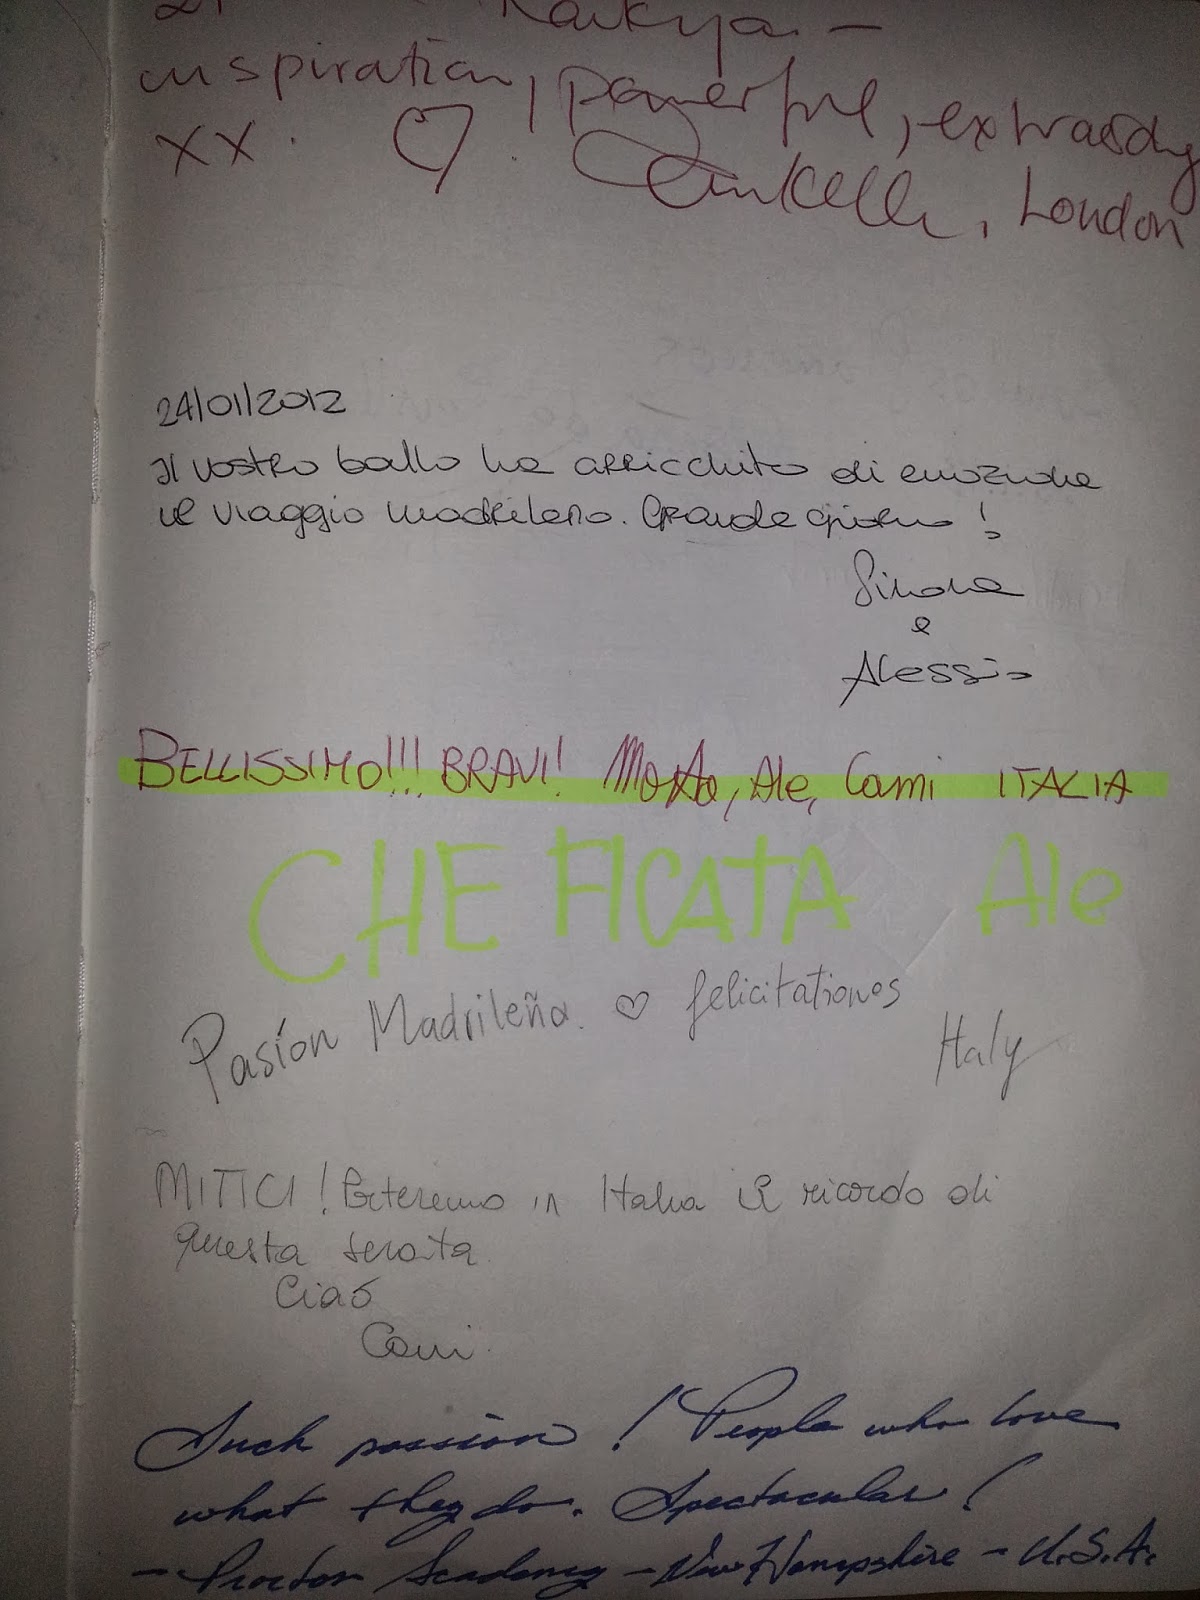 inspiration, powerful,
xx.
London
24/01/2012
Il vostro ballo ha arricchito di emozione
il viaggio madrileno. Grande giorno!
Simona
e
Alessio
BELLISSIMO!!! BRAVI! Ale, Cami ITALIA
CHE FICATA Ale
Pasíon Madrileña. ♡ felicitationes
Italy
MITICI! Porteremo in Italia il ricordo di
questa serata
Ciaó
Cami
Such passion! People who love
what they do. Spectacular!
- Proctor Academy - New Hampshire - U.S.A.